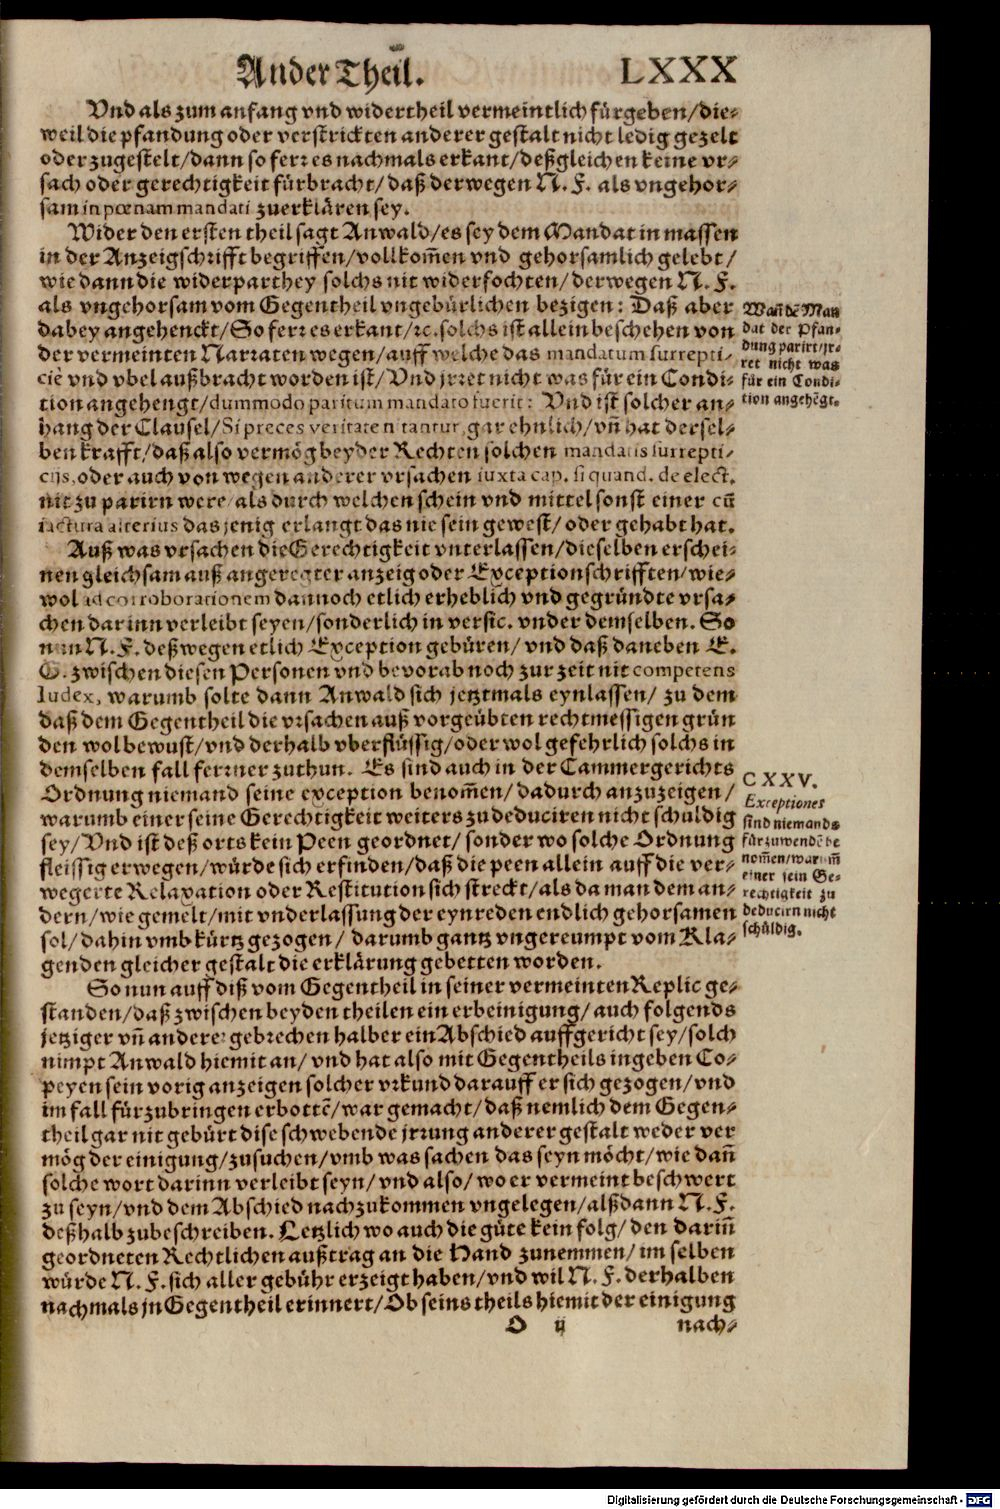 Ander Theil. LXXX
Vnd als zum anfang vnd widertheil vermeintlich fürgeben/die-
weil die pfandung oder verstrickten anderer gestalt nicht ledig gezelt
oder zugestelt/dann so ferr es nachmals erkant/deßgleichen keine vr-
sach oder gerechtigkeit fürbracht/daß derwegen N. F. als vngehor-
sam in pœnam mandati zuerklären sey.
Wider den ersten theil sagt Anwald/es sey dem Mandat in massen
in der Anzeigschrifft begriffen/vollkom̃en vnd gehorsamlich gelebt/
wie dann die widerparthey solchs nit widerfochten/derwegen N. F.
als vngehorsam vom Gegentheil vngebürlichen bezigen: Daß aber
dabey angehenckt/So ferr es erkant/ꝛc. solchs ist allein beschehen von
der vermeinten Narraten wegen/auff welche das mandatum surrepti-
ciè vnd vbel außbracht worden ist/Vnd jrret nicht was für ein Condi-
tion angehengt/dummodo paritum mandato fuerit: Vnd ist solcher an-
hang der Clausel/Si preces veritate nitantur, gar ehnlich/vñ hat dersel-
ben krafft/daß also vermög beyder Rechten solchen mandatis surrepti-
cijs, oder auch von wegen anderer vrsachen iuxta cap. si quand. de elect.
nit zu parirn were/als durch welchen schein vnd mittel sonst einer cũ
iactura alterius das jenig erlangt das nie sein gewest/oder gehabt hat.
Auß was vrsachen die Gerechtigkeit vnterlassen/dieselben erschei-
nen gleichsam auß angeregter anzeig oder Exceptionschrifften/wie-
wol ad corroborationem dannoch etlich erheblich vnd gegründte vrsa-
chen darinn verleibt seyen/sonderlich in versic. vnder demselben. So
nun N. F. deßwegen etlich Exception gebüren/vnd daß daneben E.
G. zwischen diesen Personen vnd bevorab noch zur zeit nit competens
Iudex, warumb solte dann Anwald sich jetztmals eynlassen/zu dem
daß dem Gegentheil die vrsachen auß vorgeübten rechtmessigen grün
den wol bewust/vnd derhalb vberflüssig/oder wol gefehrlich solchs in
demselben fall ferrner zuthun. Es sind auch in der Cammergerichts
Ordnung niemand seine exception benom̃en/dadurch anzuzeigen/
warumb einer seine Gerechtigkeit weiters zu deduciren nicht schuldig
sey/Vnd ist deß orts kein Peen geordnet/sonder wo solche Ordnung
fleissig erwegen/würde sich erfinden/daß die peen allein auff die ver-
wegerte Relaxation oder Restitution sich streckt/als da man dem an-
dern/wie gemelt/mit vnderlassung der eynreden endlich gehorsamen
sol/dahin vmb kürtz gezogen/darumb gantz vngereumpt vom Kla-
genden gleicher gestalt die erklärung gebetten worden.
So nun auff diß vom Gegentheil in seiner vermeinten Replic ge-
standen/daß zwischen beyden theilen ein erbeinigung/auch folgends
jetziger vñ anderer gebrechen halber ein Abschied auffgericht sey/solch
nimpt Anwald hiemit an/vnd hat also mit Gegentheils ingeben Co-
peyen sein vorig anzeigen solcher vrkund darauff er sich gezogen/vnd
im fall fürzubringen erbottẽ/war gemacht/daß nemlich dem Gegen-
theil gar nit gebürt dise schwebende jrrung anderer gestalt weder ver
mög der einigung/zusuchen/vmb was sachen das seyn möcht/wie dañ
solche wort darinn verleibt seyn/vnd also/wo er vermeint beschwert
zu seyn/vnd dem Abschied nachzukommen vngelegen/alßdann N. F.
deßhalb zubeschreiben. Letzlich wo auch die güte kein folg/den dariñ
geordneten Rechtlichen außtrag an die Hand zunemmen/im selben
würde N. F. sich aller gebühr erzeigt haben/vnd wil N. F. derhalben
nachmals jn Gegentheil erinnert/Ob seins theils hiemit der einigung
O ij nach-
Wañ dẽ Man
dat der Pfan-
dung parirt/jr-
ret nicht was
für ein Condi-
tion angehẽgt.
CXXV.
Exceptiones
sind niemands
fürzuwendẽ be
nom̃en/warum̃
einer sein Ge-
rechtigkeit zu
deducirn nicht
schüldig.
Digitalisierung gefördert durch die Deutsche Forschungsgemeinschaft - DFG